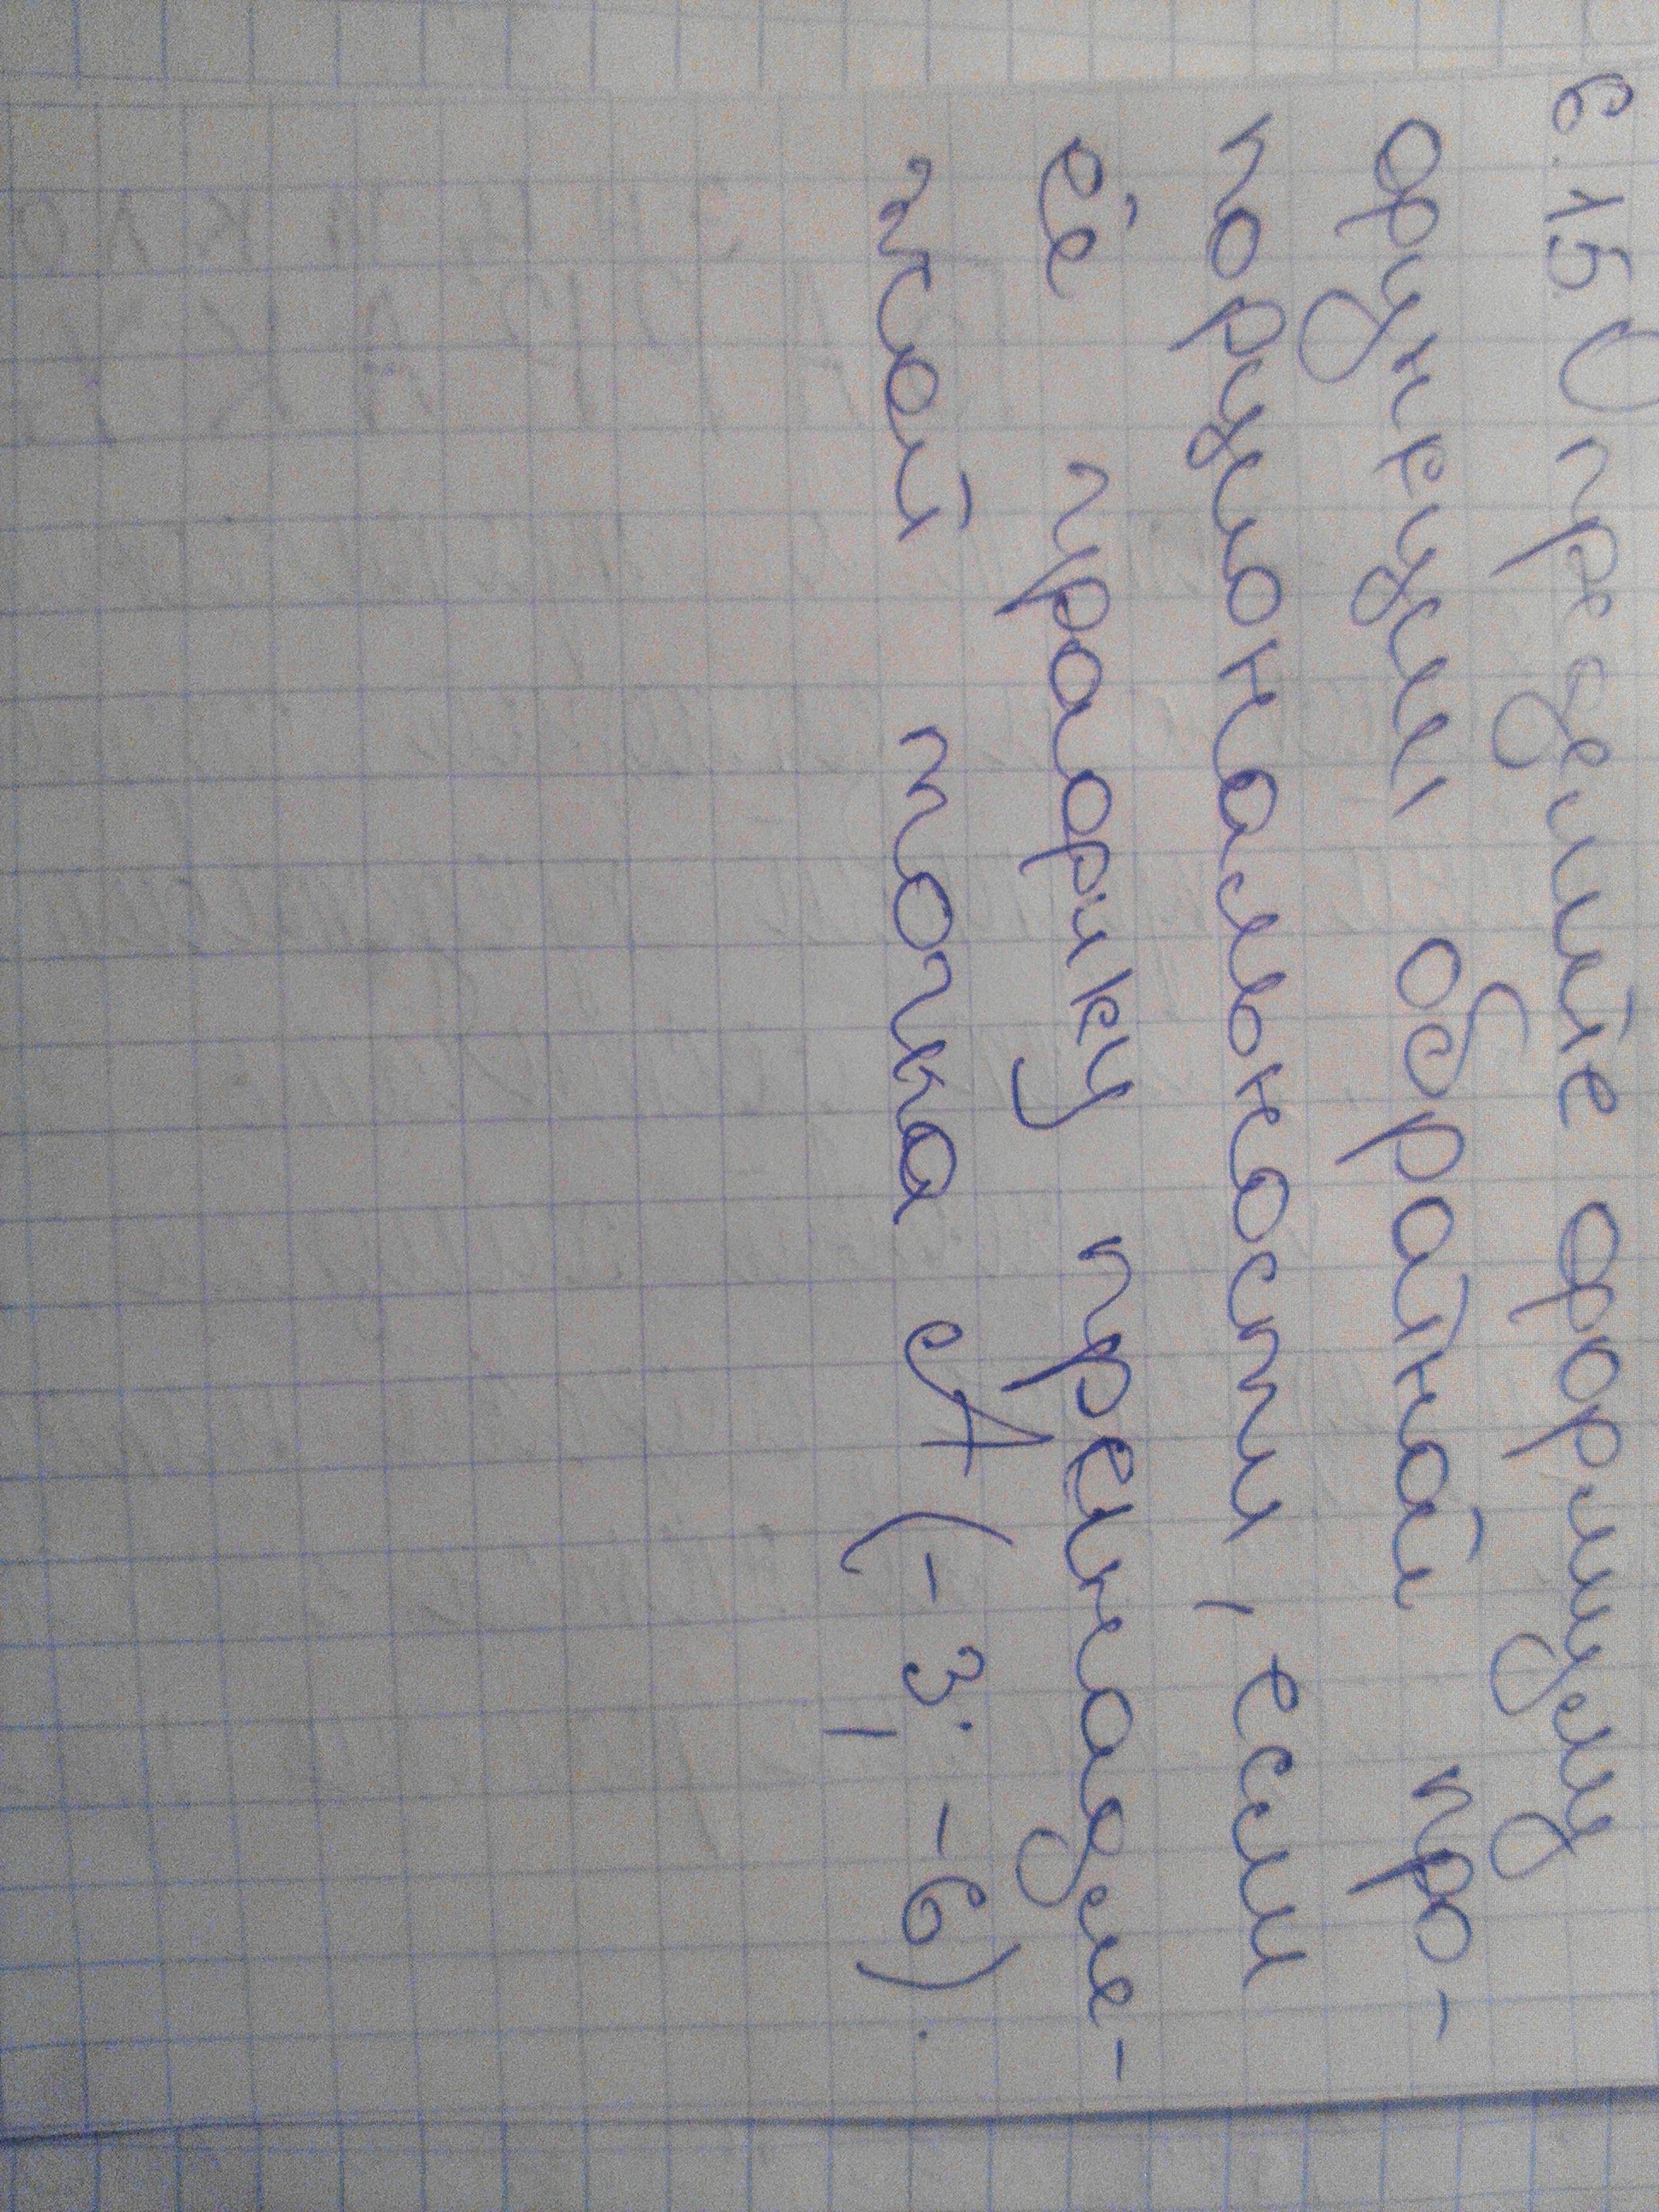 6.15 Определите формулу
функции обратной про-
порциональности, если
её графику принадле-
жит точка А (-3; -6).